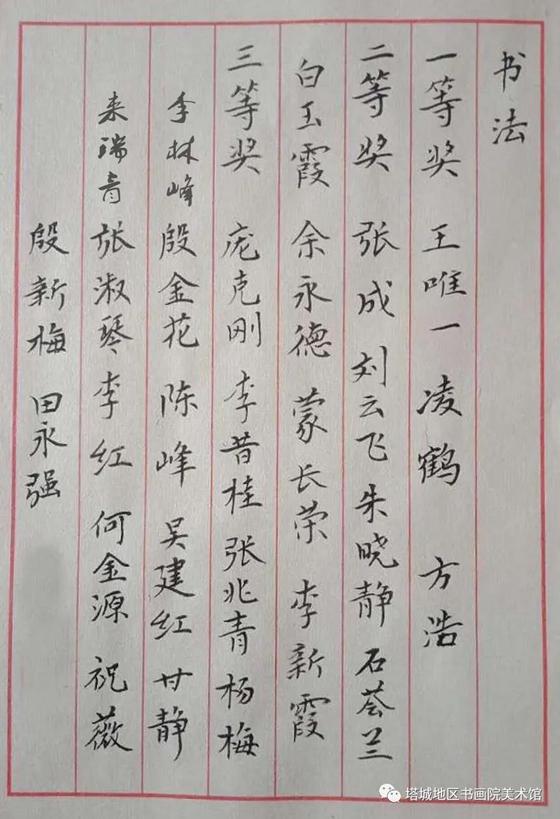 书法
一等奖 王唯一 凌鹤 方浩
二等奖 张成 刘云飞 朱晓静 石荟兰
白玉霞 余永德 蒙长荣 李新霞
三等奖 庞克刚 李昔桂 张兆青 杨梅
李林峰 殷金花 陈峰 吴建红 甘静
来瑞青 张淑琴 李红 何金源 祝薇
殷新梅 田永强
塔城地区书画院美术馆